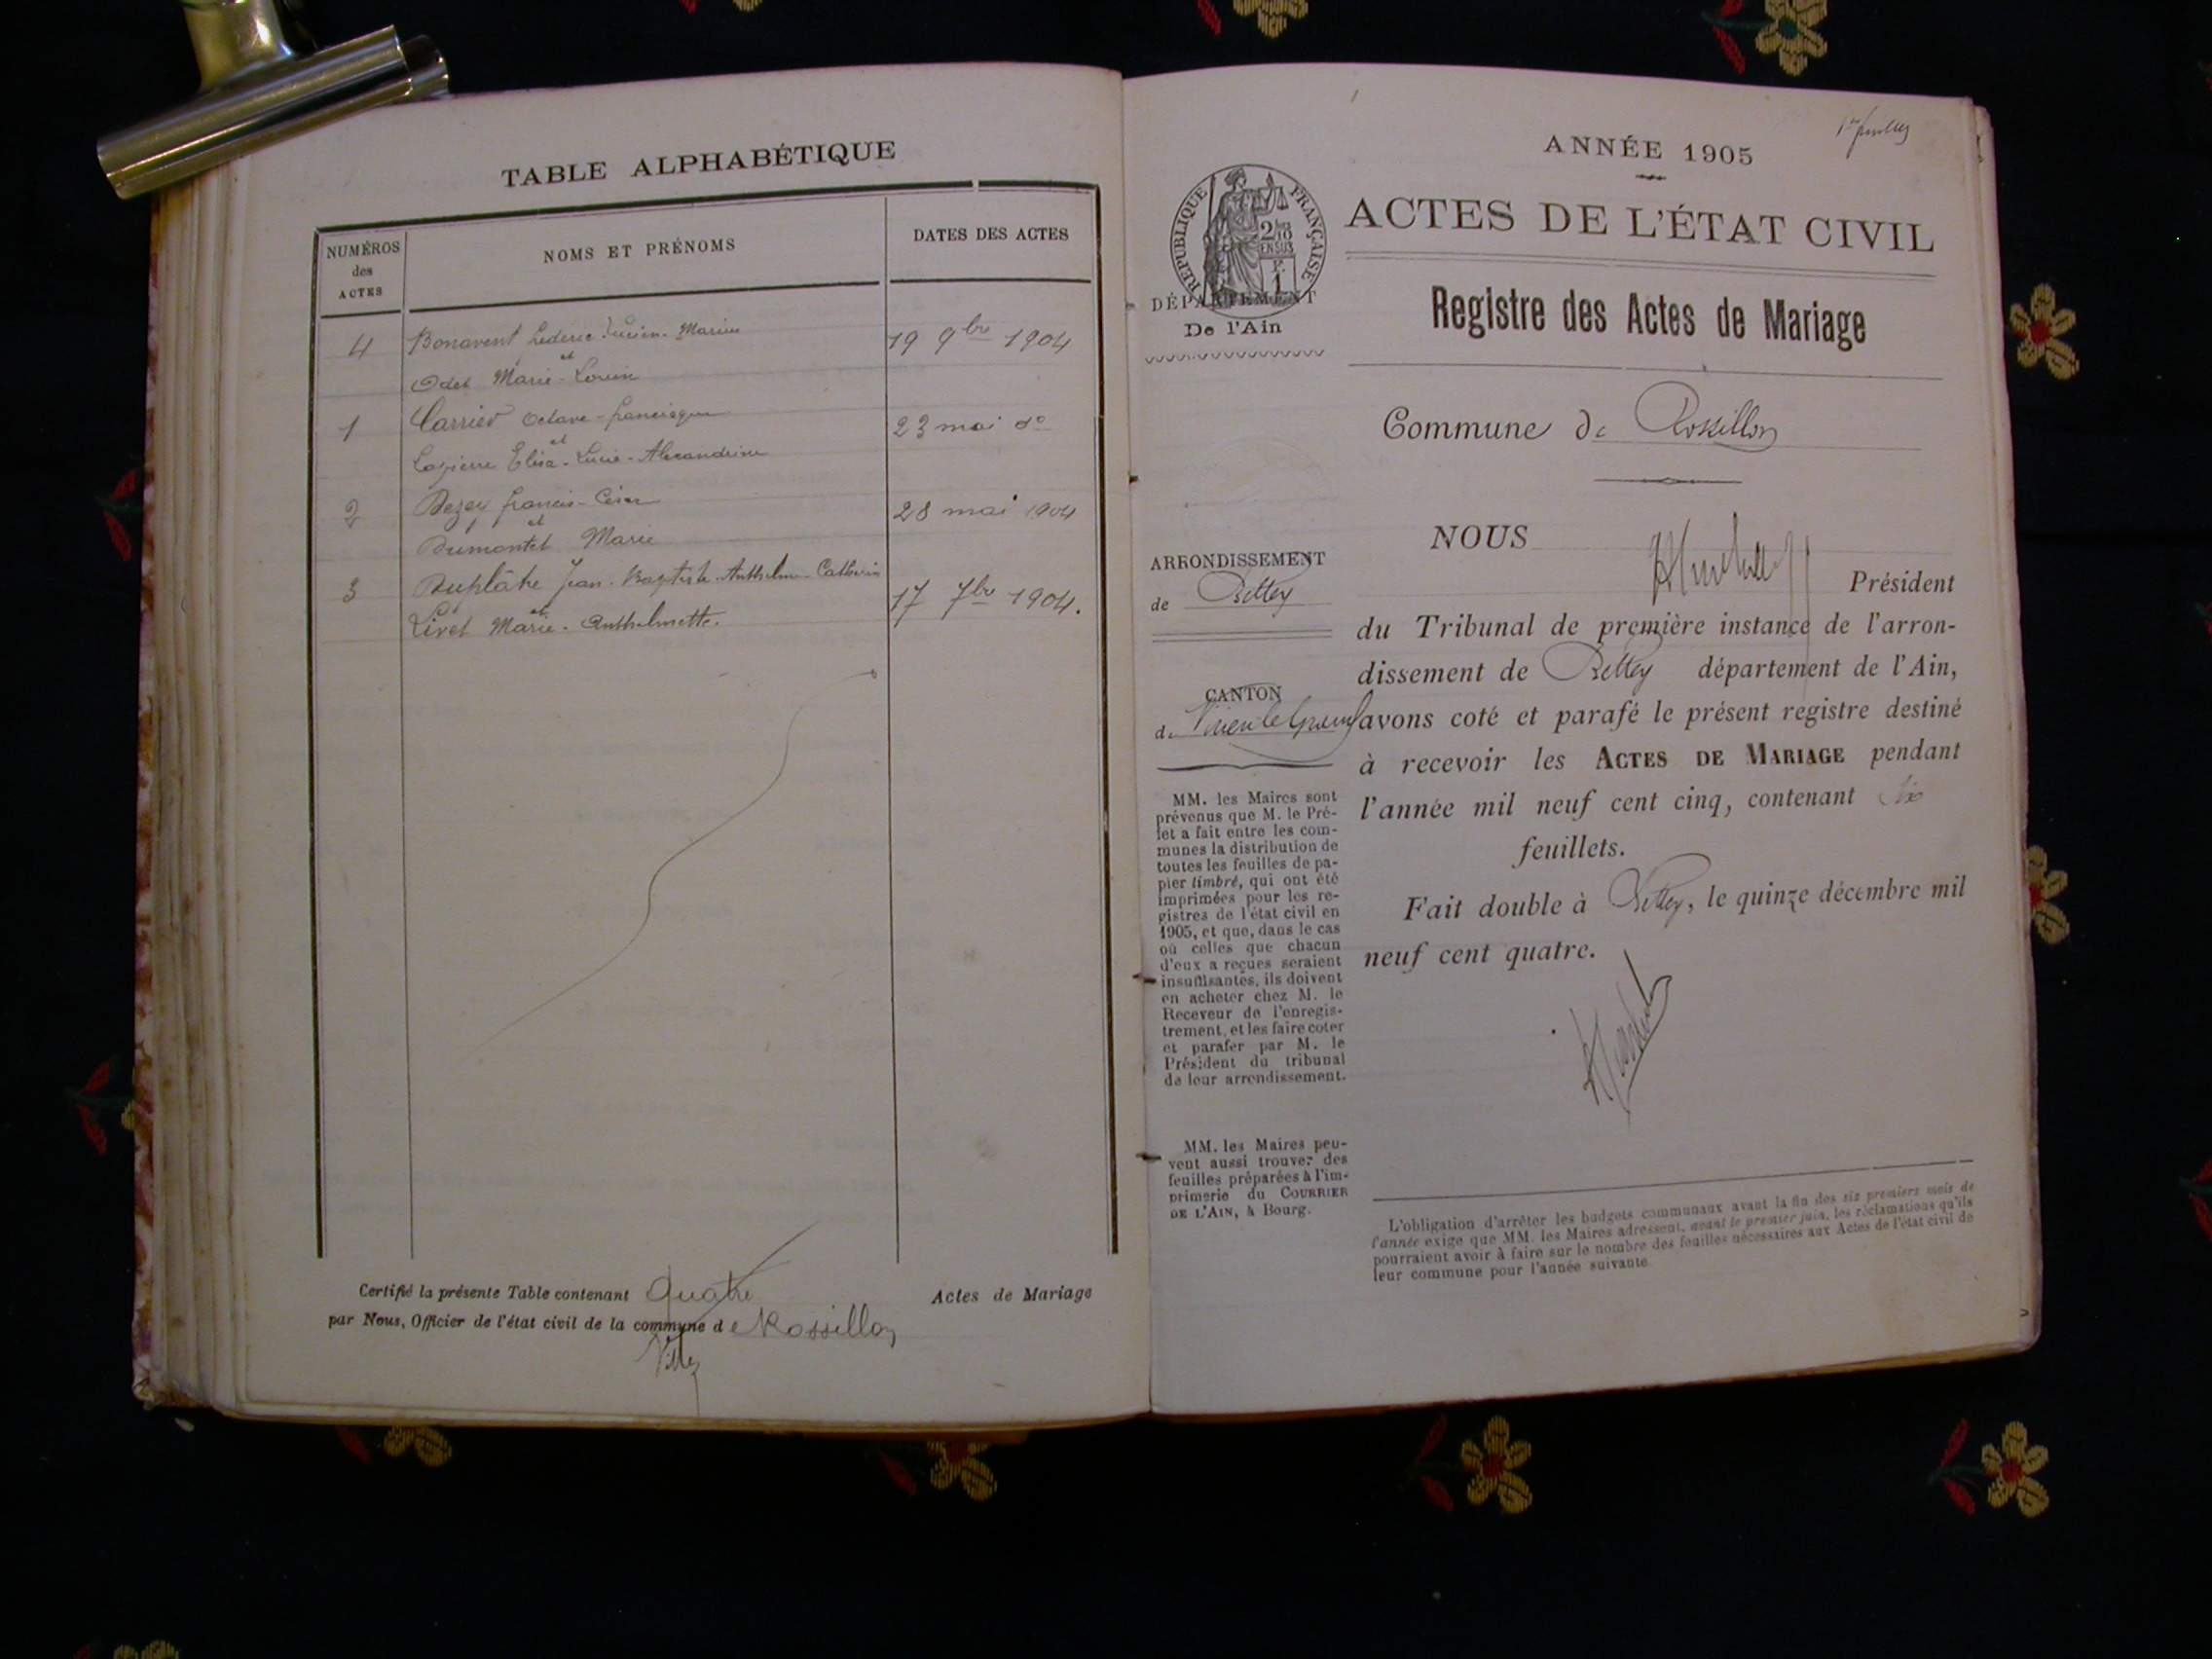 TABLE ALPHABÉTIQUE
NUMÉROS
des
ACTES
NOMS ET PRÉNOMS
DATES DES ACTES
4 Bonavent Lucien-Marius 19 9bre 1904
et
Odet Marie-Louise
1 Carrier Octave-francisque 23 mai do
et
Lapierre Elisa-Lucie-Alexandrine
2 Dezey francis-César 28 mai 1904
et
Dumontet Marie
3 Duplâtre Jean-Baptiste-Anthelme-Catherin 17 7bre 1904.
et
Livet Marie-Anthelmette.
Certifié la présente Table contenant Quatre Actes de Mariage
par Nous, Officier de l'état civil de la commune de Rossillon
1er feuillet
ANNÉE 1905
ACTES DE L'ÉTAT CIVIL
RÉPUBLIQUE FRANÇAISE
EN SUS
DÉPARTEMENT
De l'Ain
Registre des Actes de Mariage
Commune de Rossillon
ARRONDISSEMENT
de Belley
CANTON
de Virieu le Grand
NOUS
Président
du Tribunal de première instance de l'arron-
dissement de Belley département de l'Ain,
avons coté et parafé le présent registre destiné
à recevoir les ACTES DE MARIAGE pendant
l'année mil neuf cent cinq, contenant six
feuillets.
Fait double à Belley, le quinze décembre mil
neuf cent quatre.
MM. les Maires sont
prévenus que M. le Pré-
fet a fait entre les com-
munes la distribution de
toutes les feuilles de pa-
pier timbré, qui ont été
imprimées pour les re-
gistres de l'état civil en
1905, et que, dans le cas
où celles que chacun
d'eux a reçues seraient
insuffisantes, ils doivent
en acheter chez M. le
Receveur de l'enregis-
trement, et les faire coter
et parafer par M. le
Président du tribunal
de leur arrondissement.
MM. les Maires peu-
vent aussi trouver des
feuilles préparées à l'im-
primerie du COURRIER
DE L'AIN, à Bourg.
L'obligation d'arrêter les budgets communaux avant la fin des six premiers mois de
l'année exige que MM. les Maires adressent, avant le premier juin, les réclamations qu'ils
pourraient avoir à faire sur le nombre des feuilles nécessaires aux Actes de l'état civil de
leur commune pour l'année suivante.